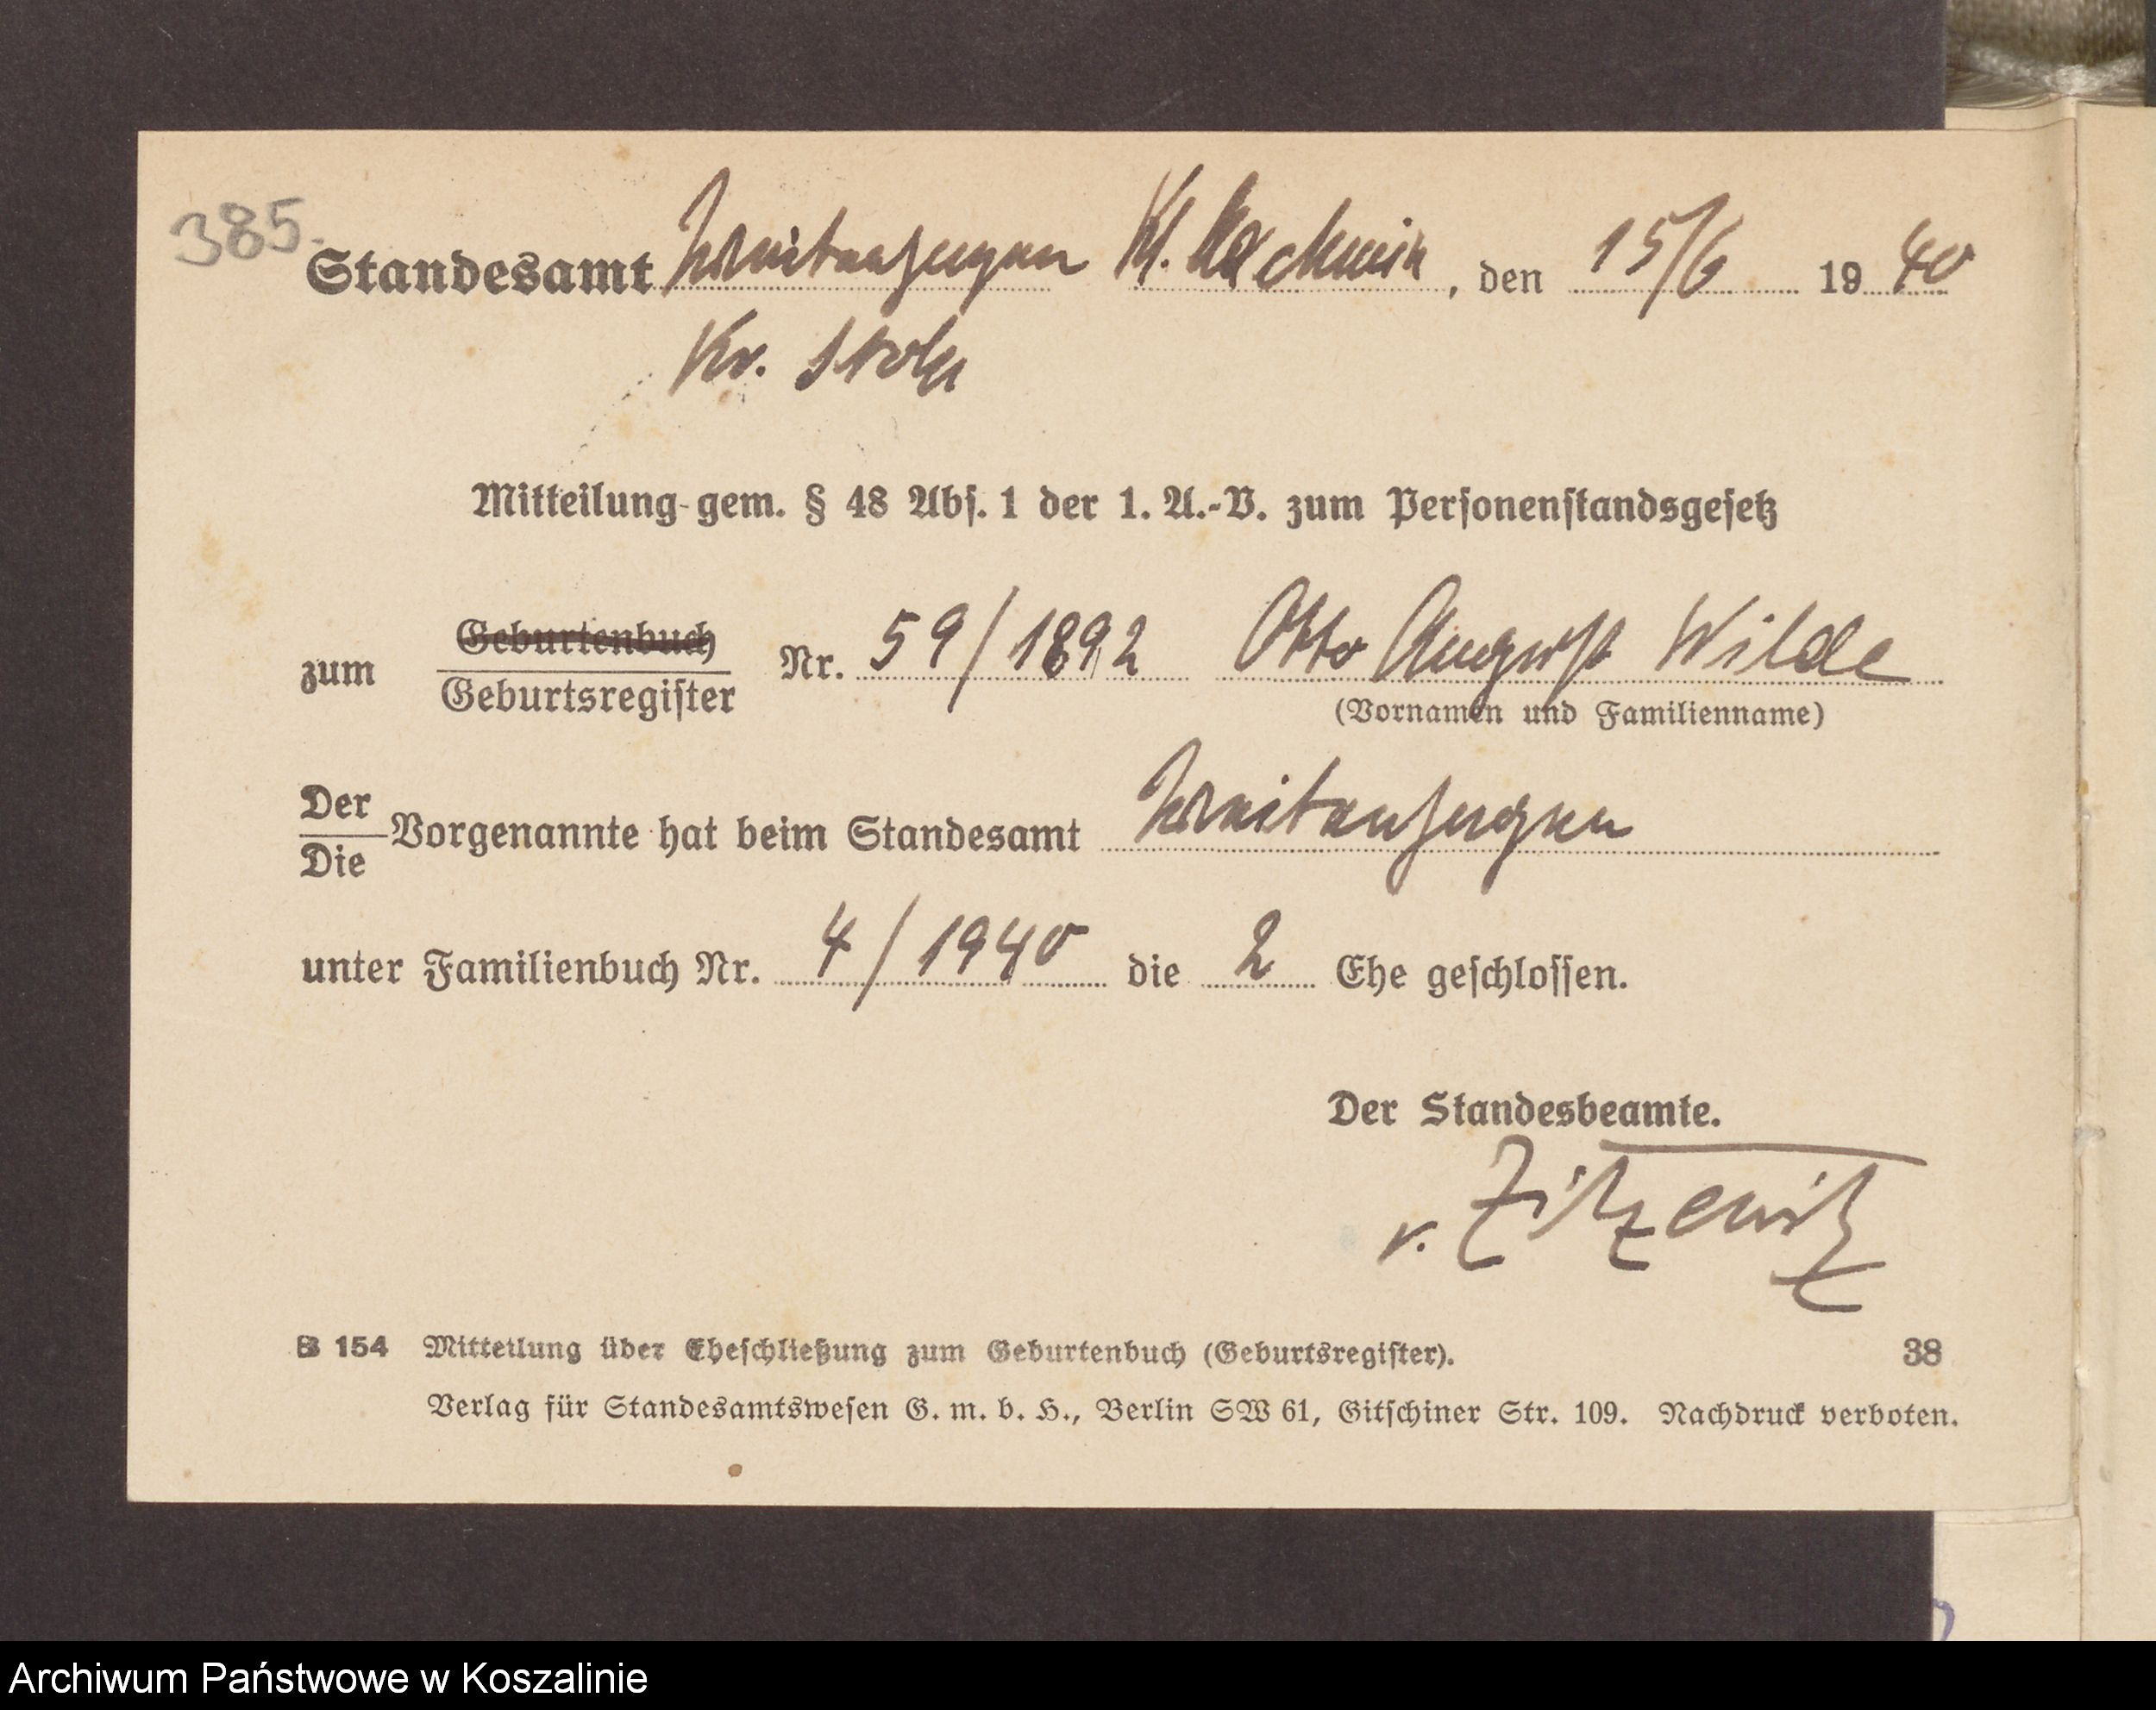 385.
Standesamt Weitenhagen Kl. Machmin, den 15/6 1940
Kr. Stolp
Mitteilung gem. § 48 Abs. 1 der 1. A.-V. zum Personenstandsgesetz
zum Geburtenbuch Nr. 59/1892 Otto August Wilde
Geburtsregister (Vornamen und Familienname)
Der
Die Vorgenannte hat beim Standesamt Weitenhagen
unter Familienbuch Nr. 4/1940 die 2 Ehe geschlossen.
Der Standesbeamte.
v. Zitzewitz
B 154 Mitteilung über Eheschließung zum Geburtenbuch (Geburtsregister). 38
Verlag für Standesamtswesen G. m. b. H., Berlin SW 61, Gitschiner Str. 109. Nachdruck verboten.
Archiwum Państwowe w Koszalinie